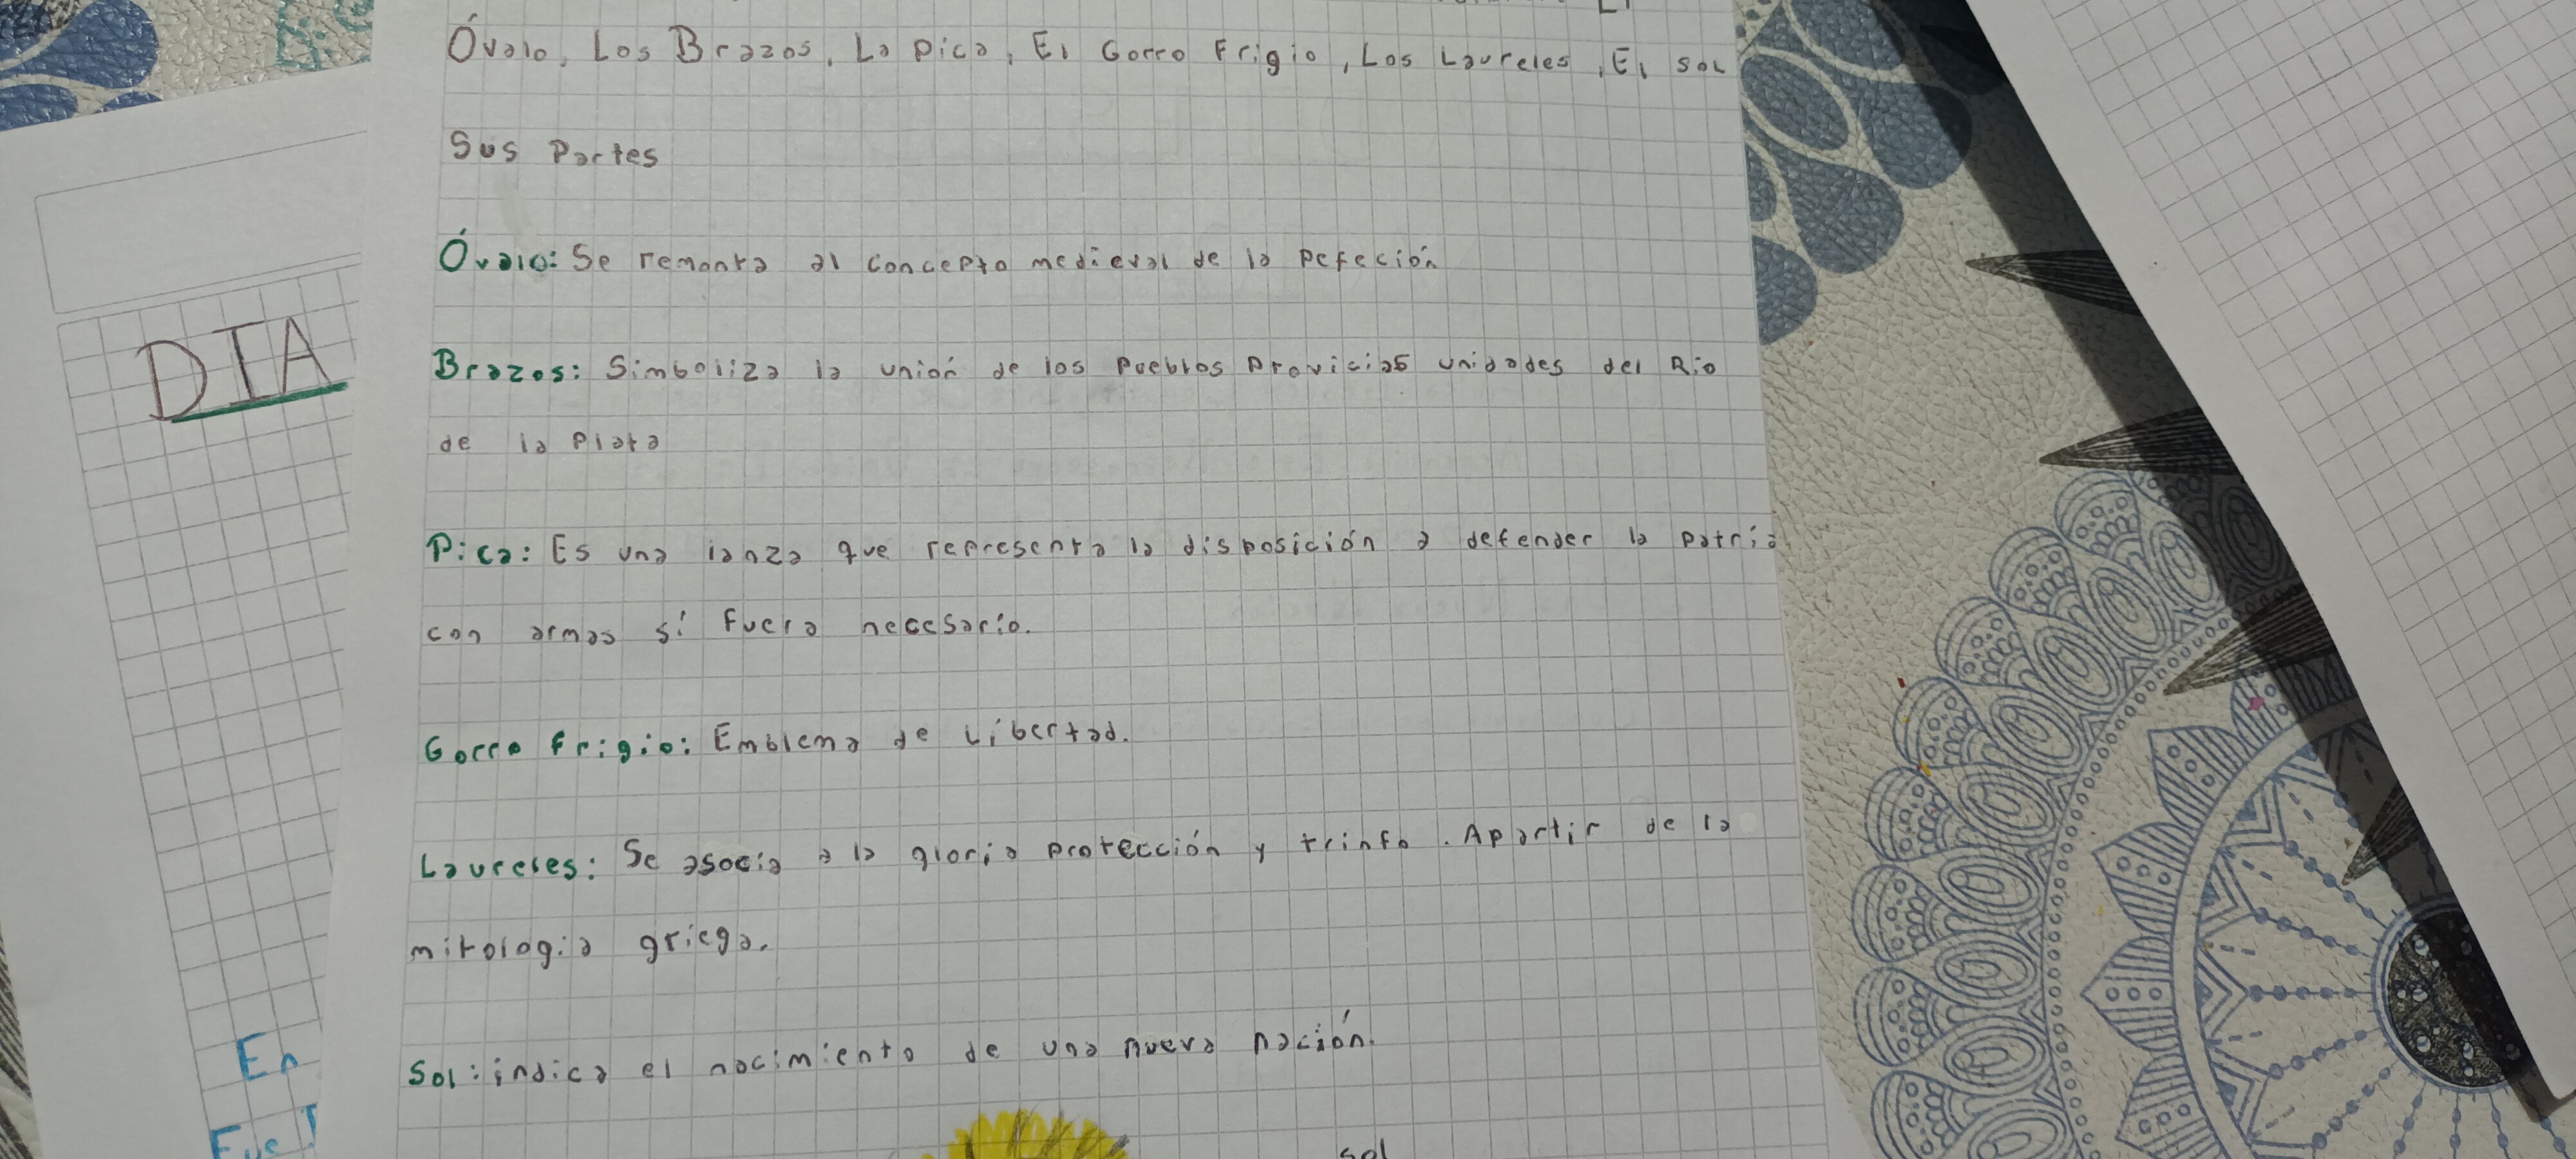 Óvalo, Los Brazos, La Pica, El Gorro Frigio, Los Laureles, El sol
Sus Partes
Óvalo: Se remonta al concepto medieval de la pefeción
Brazos: Simboliza la unión de los Pueblos Provicias unidades del Rio
de la Plata
Pica: Es una lanza que representa la disposición a defender la patria
con armas sí fuera necesario.
Gorro frigio: Emblema de Libertad.
Laureles: Se asocia a la gloria protección y trinfo. Apartir de la
mitologia griega.
Sol: indica el nacimiento de una nueva nación.
sol
DIA
En
Fue